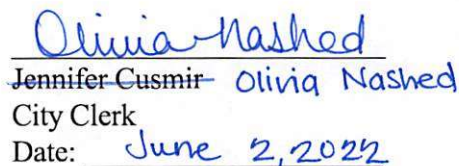 Olivia Nashed
Jennifer Cusmir Olivia Nashed
City Clerk
Date: June 2, 2022